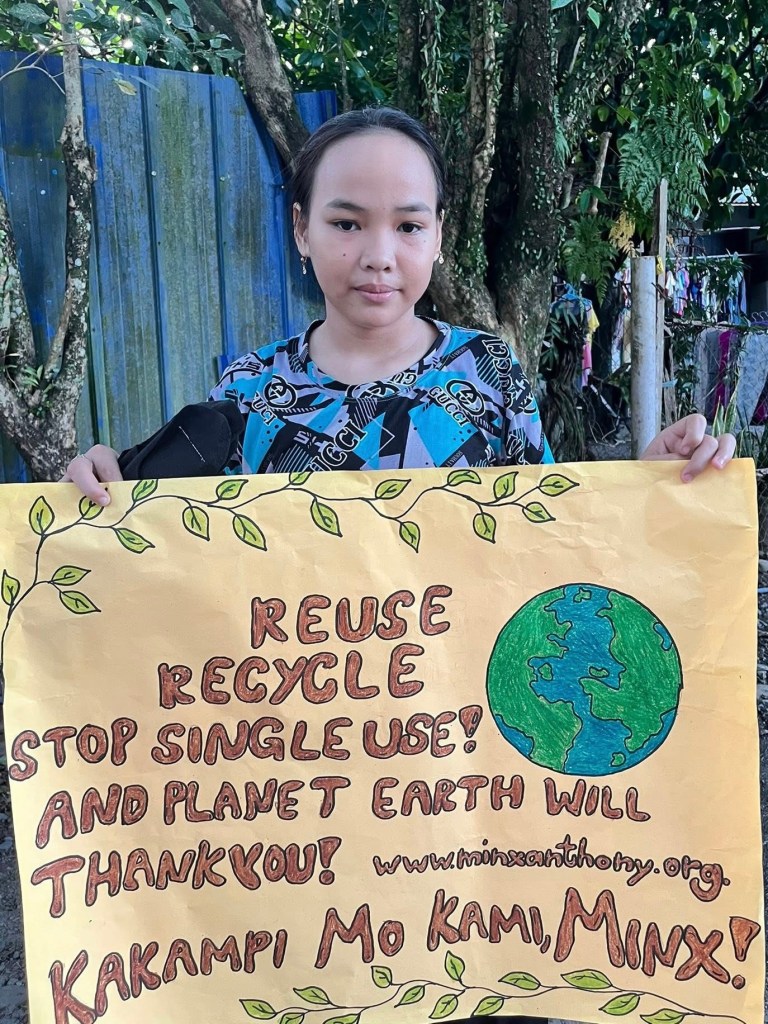 GUCCI
GUCCI
GUCCI
REUSE
RECYCLE
STOP SINGLE USE!
AND PLANET EARTH WILL
THANKYOU!
www.minxanthony.org.
KAKAMPI MO KAMI, MINX!